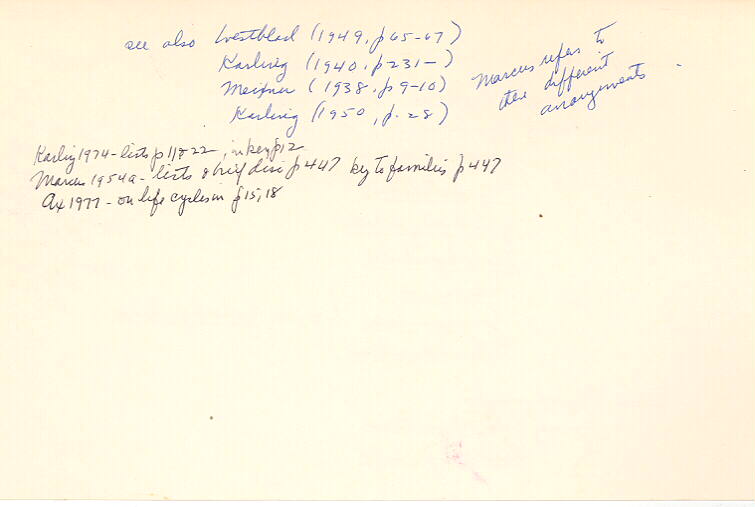 see also Westblad (1949, p65-67)
Karling (1940, p231-)
Meixner (1938, p9-10)
Karling (1950, p.28)
Marcus refers to
their different
arrangements
Karling 1974 - lists p 11, 22, in key p12
Marcus 1954a - lists & brief disc p447 key to families p447
Ax 1977 - on life cycles in p15,18